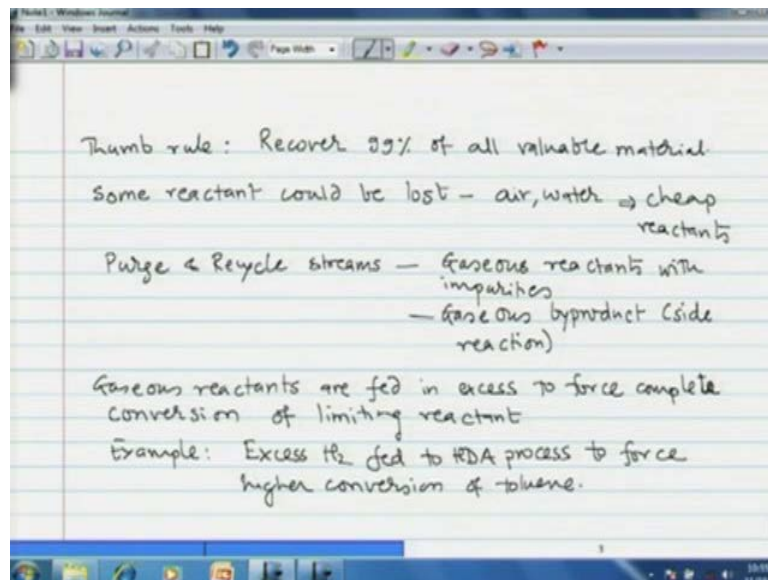 Note1 - Windows Journal
File Edit View Insert Actions Tools Help
Page Width
Thumb rule: Recover 99% of all valuable material.
Some reactant could be lost - air, water ⇒ cheap
reactants
Purge & Recycle streams - Gaseous reactants with
impurities
- Gaseous byproduct (side
reaction)
Gaseous reactants are fed in excess to force complete
conversion of limiting reactant
Example: Excess H2 fed to HDA process to force
higher conversion of toluene.